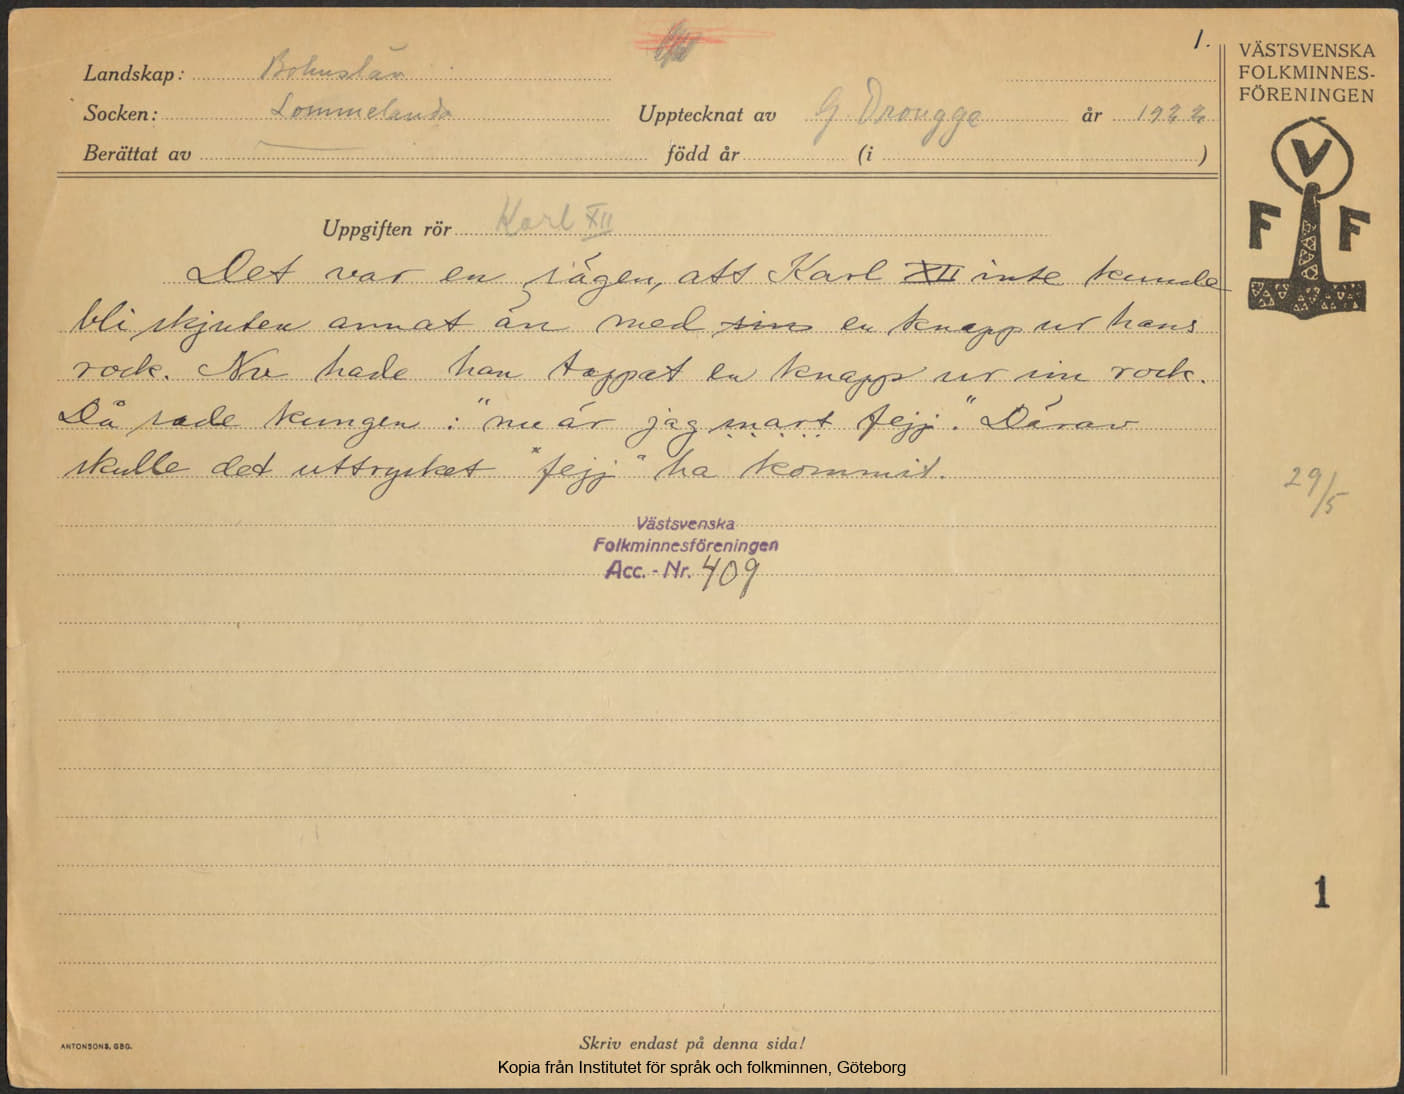 1.
Landskap: Bohuslän
Socken: Lommelanda Upptecknat av G. Drougge år 1922
Berättat av född år (i )
VÄSTSVENSKA
FOLKMINNES-
FÖRENINGEN
V
F F
Uppgiften rör Karl XII
Det var en sägen, att Karl XII inte kunde
bli skjuten annat än med sin en knapp ur hans
rock. Nu hade han tappat en knapp ur sin rock.
Då sade kungen: "nu är jag snart fejj". Därav
skulle det uttrycket "fejj" ha kommit.
29/5
Västsvenska
Folkminnesföreningen
Acc.-Nr. 409
1
ANTONSONS, GBG.
Skriv endast på denna sida!
Kopia från Institutet för språk och folkminnen, Göteborg